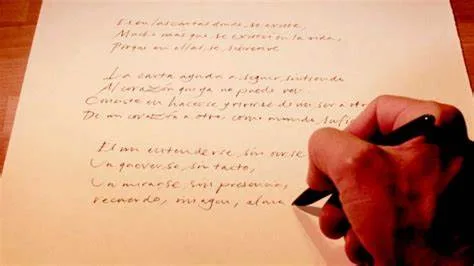 Es en las cartas donde se existe,
Mucho más que se existió en la vida,
Porque en ellas, se sobrevive
La carta ayuda a seguir sintiendo
Al corazón que ya no puede ver
en hacerse y de ser a
De un corazón a otro, como
Es un entenderse, sin oirse
Un quererse, sin tacto,
Un mirarse, sin presencia,
recuerdo, imagen, alma